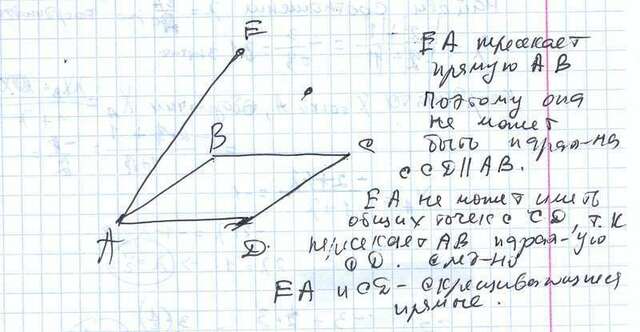 E
B
C
A
D.
EA пересекает
прямую AB
Поэтому она
не может
быть парал-на
с CD || AB.
EA не может иметь
общих точек с CD, т.к
пересекает AB парал-ую
CD. След-но
EA и CD - скрещивающиеся
прямые.